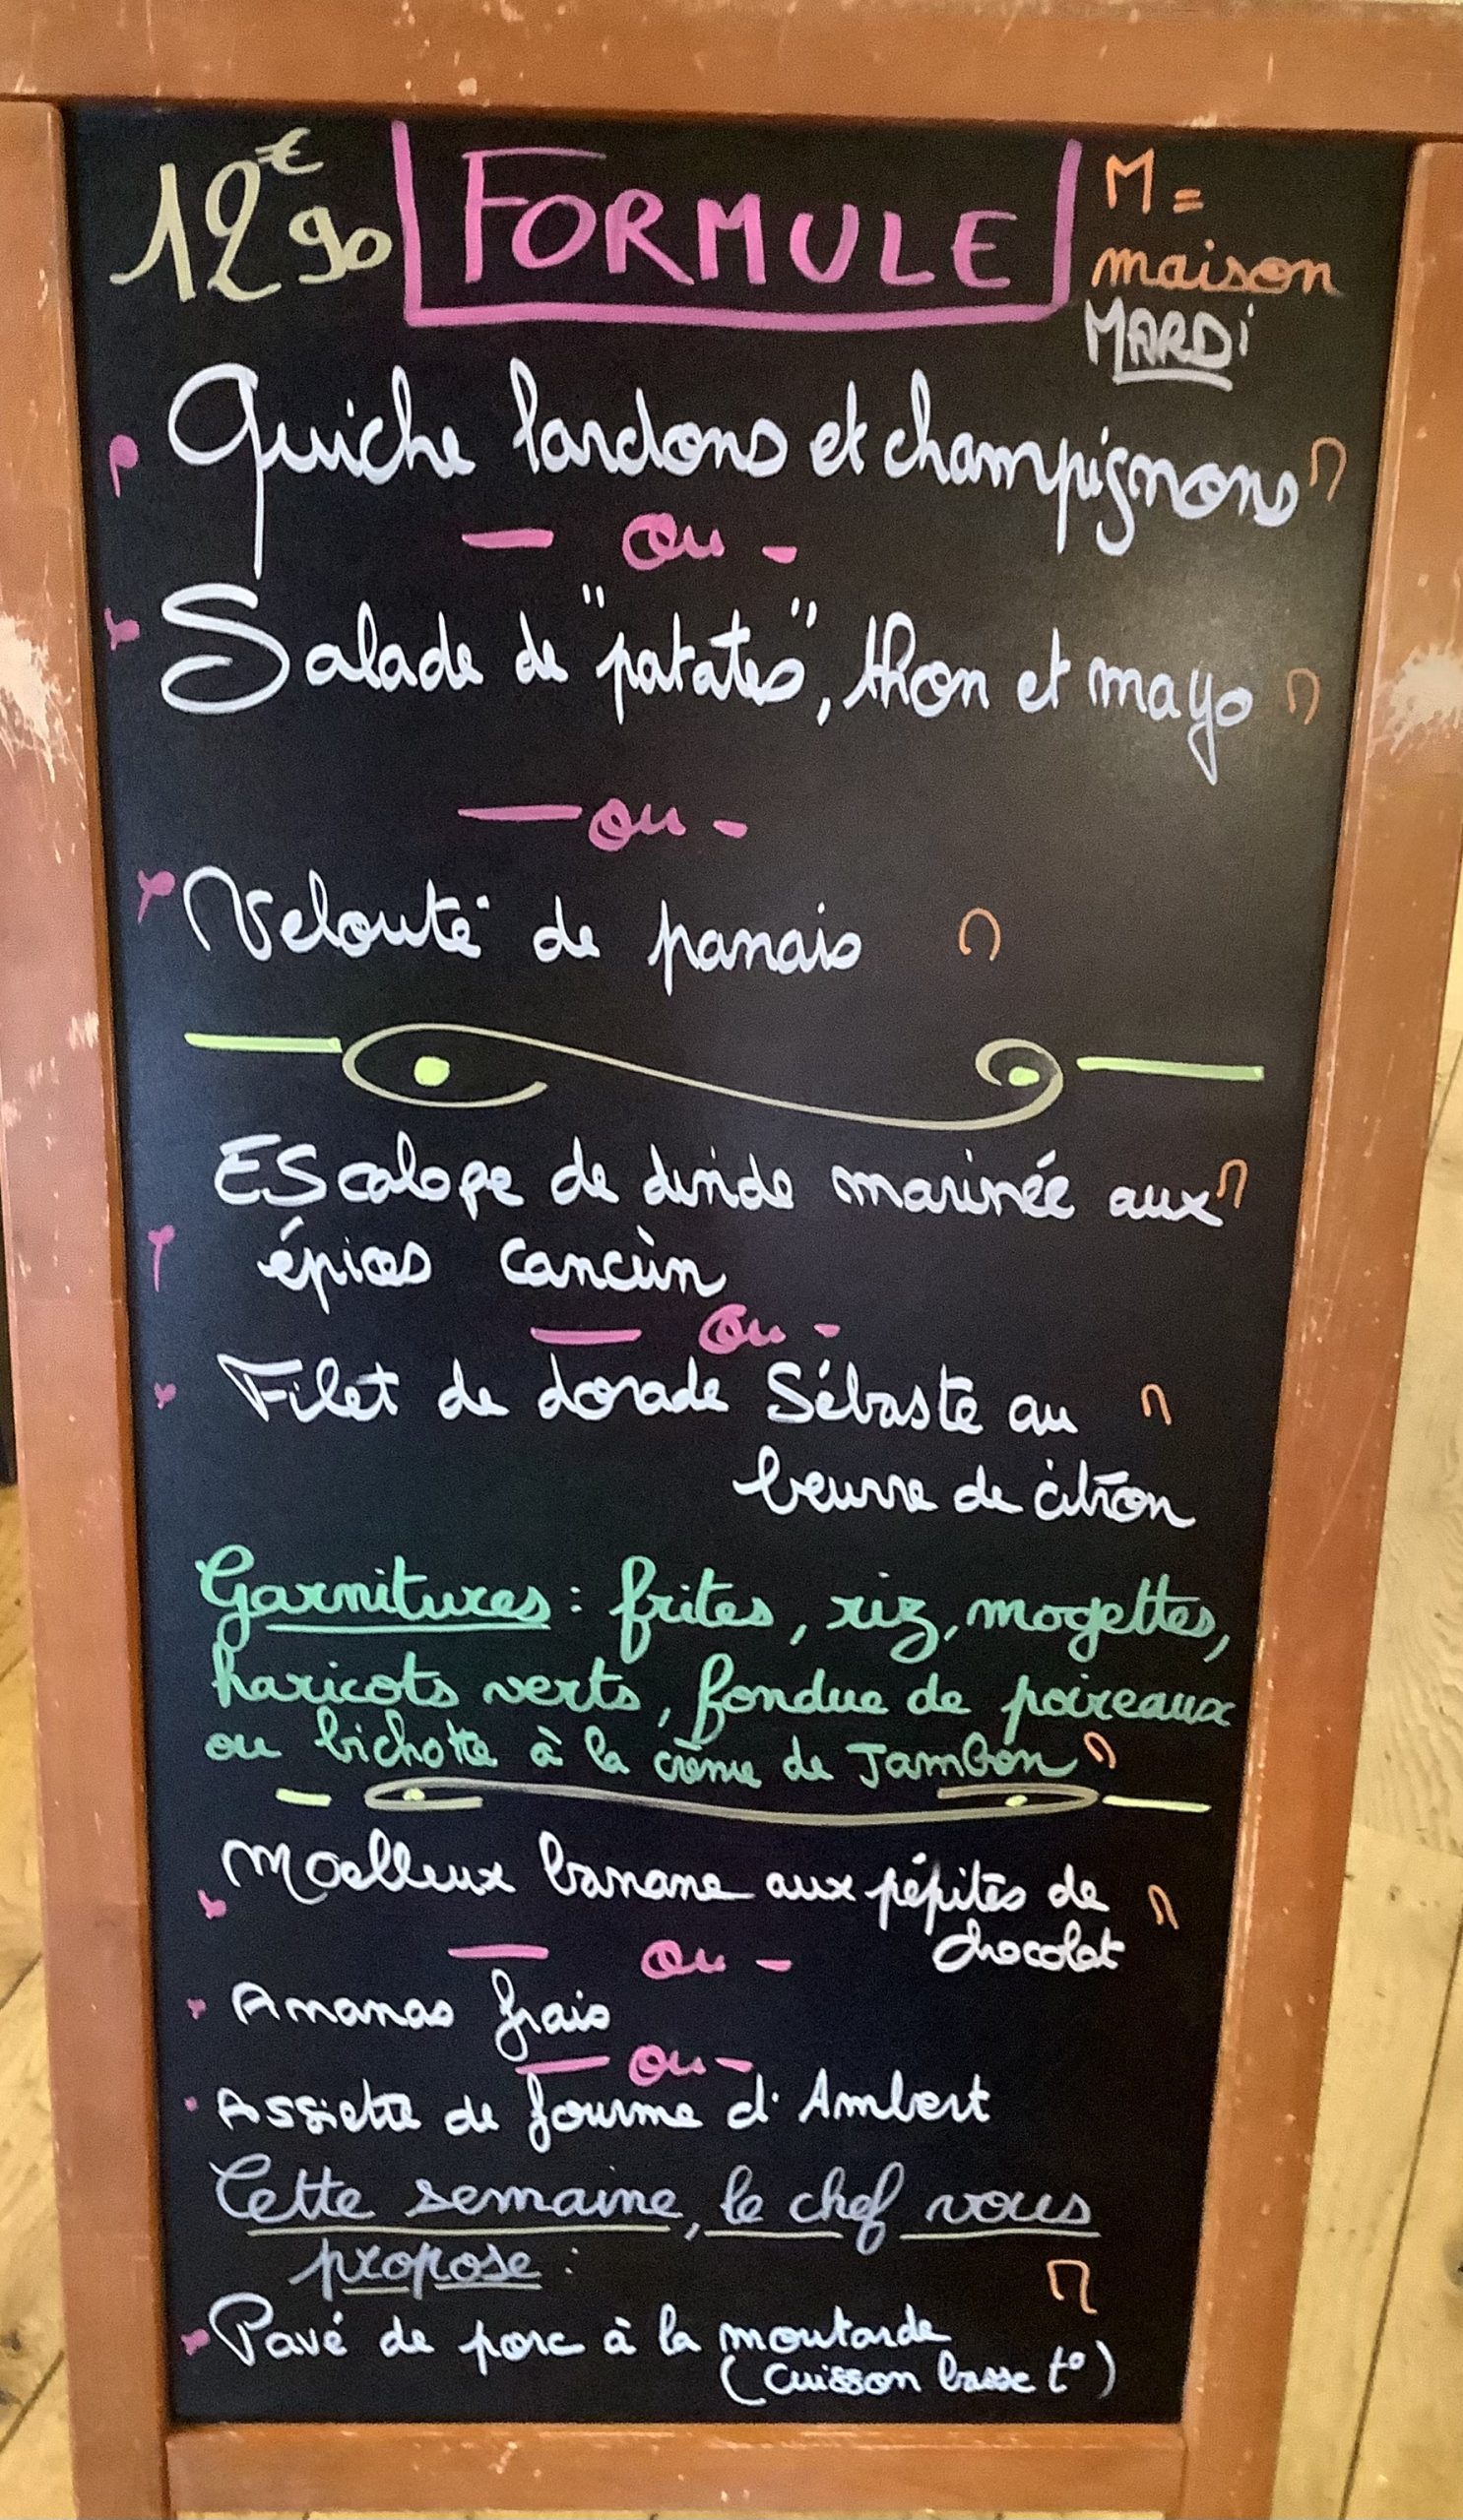 12€90 FORMULE M =
maison
MARDi
Quiche lardons et champignons M
- ou -
Salade de "patates", thon et mayo M
- ou -
Velouté de panais M
EScalope de dinde marinée aux M
épices cancùn
- ou -
Filet de dorade Sébaste au M
beurre de citron
Garnitures : frites, riz, mogettes,
haricots verts, fondue de poireaux
ou à la crème de Jambon M
Moelleux banane aux pépites de M
chocolat
- ou -
Ananas frais
- ou -
Assiette de fourme d'Ambert
Cette semaine, le chef vous
propose : M
Pavé de porc à la moutarde
(cuisson basse t°)